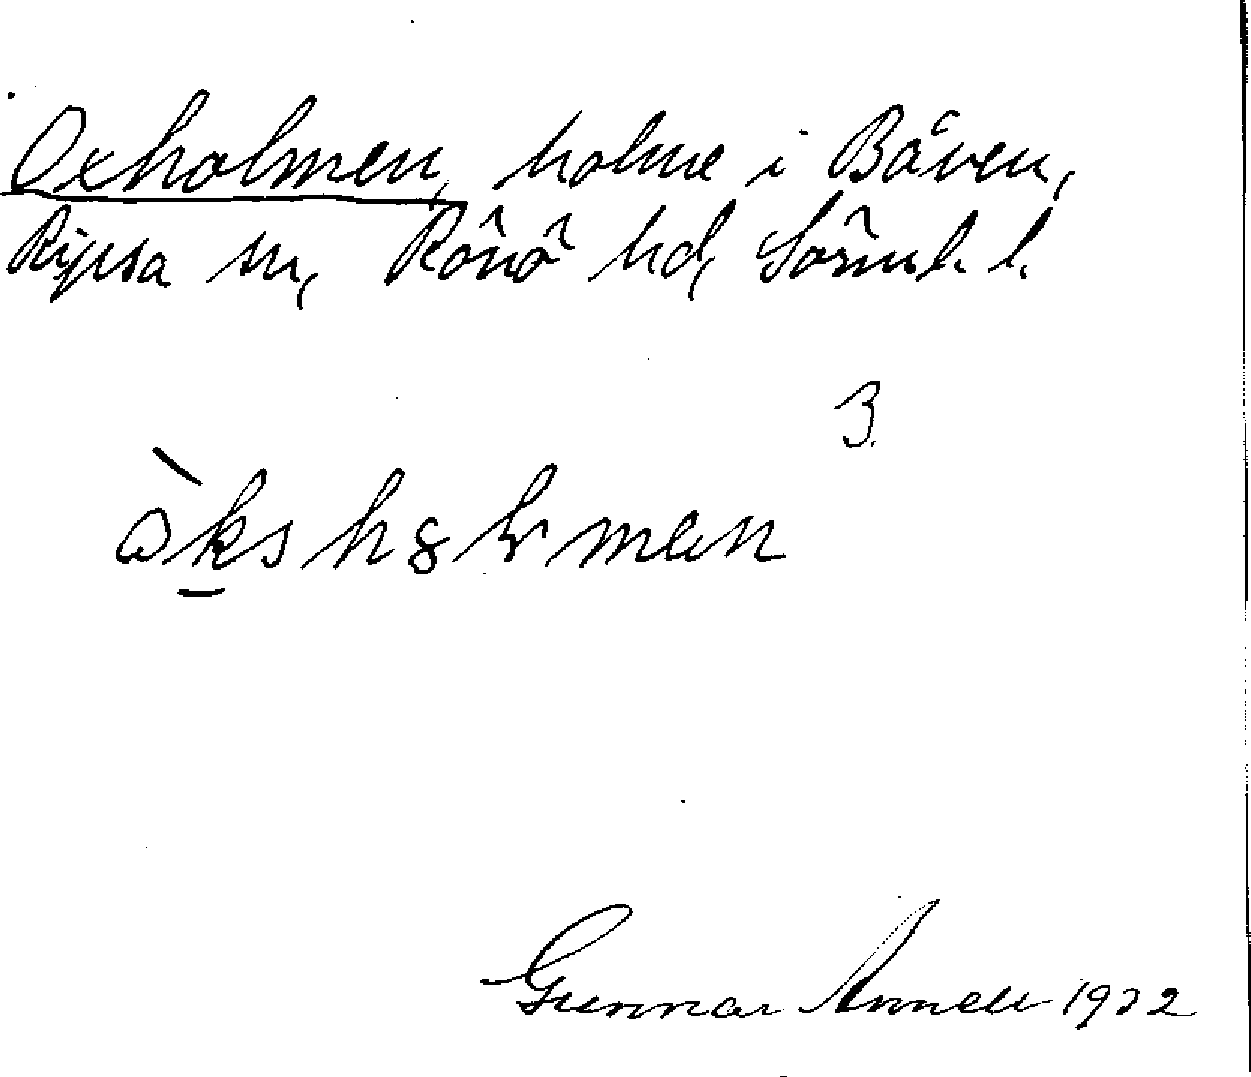 Oxholmen, holme i Båven,
Ripsa sn, Rönö hd, Sörml. l.
3.
Gunnar Annell 1932